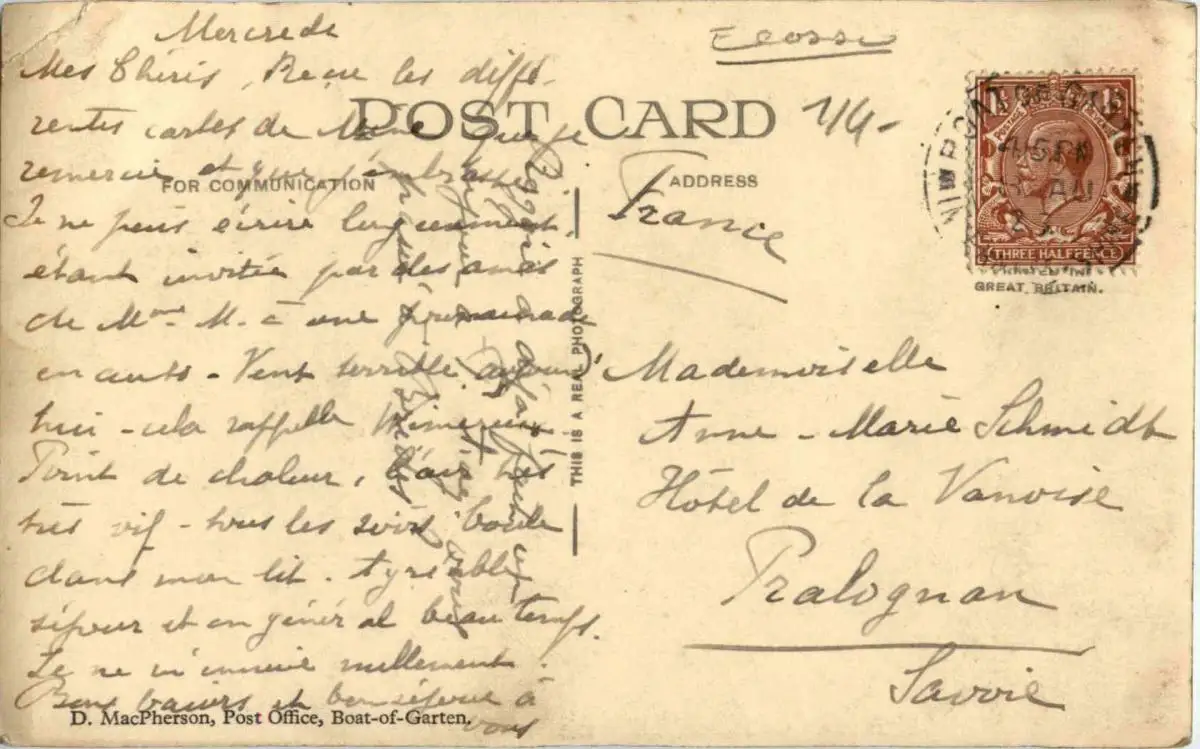 Mercredi
Mes Chéris, Reçu les diffé-
rentes cartes de Mme que je
remercie et que j'embrasse.
Je ne puis écrire longuement
étant invitée par des amis
de Mme M. à une promenade
en auto - Vent terrible aujourd'
hui - cela rappelle Wimereux
Point de chaleur, l'air très
très vif - tous les soirs boule
dans mon lit. Agréable
séjour et en général beau temps.
Je ne m'ennuie nullement.
Bons baisers et bon séjour à
vous
D. MacPherson, Post Office, Boat-of-Garten.
POST CARD
FOR COMMUNICATION
ADDRESS
THIS IS A REAL PHOTOGRAPH
Ecosse
1/4-
France
Mademoiselle
Anne-Marie Schmidt
Hôtel de la Vanoise
Pralognan
Savoie
POSTAGE
REVENUE
THREE HALFPENCE
PRINTED IN
GREAT BRITAIN.
BOAT OF GARTEN
4 15 PM
AU